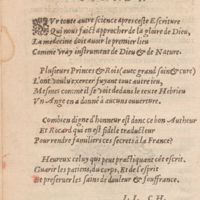 Sur toute autre science apres ceste Escriture
Qui nous faict approcher de la gloire de Dieu,
La medecine doit avoir le premier lieu
Comme vray instrument de Dieu & de Nature.
Plusieurs Princes & Rois (avec grand soin & cure)
L'ont voulu exercer fuyant tout autre ieu,
Mesmes comme il se void dedans le texte Hebrieu
Un Ange en a donné à aucuns ouverture.
Combien digne d'honneur est donc ce bon Autheur
Et Ricard qui en est fidele traducteur
Pour rendre familiers ces secrets à la France?
Heureux celuy qui peut practiquant cest escrit.
Guarir les patiens, du corps, & de l'esprit
Et preserver les sains de douleur & souffrance.
I. I. C. H.